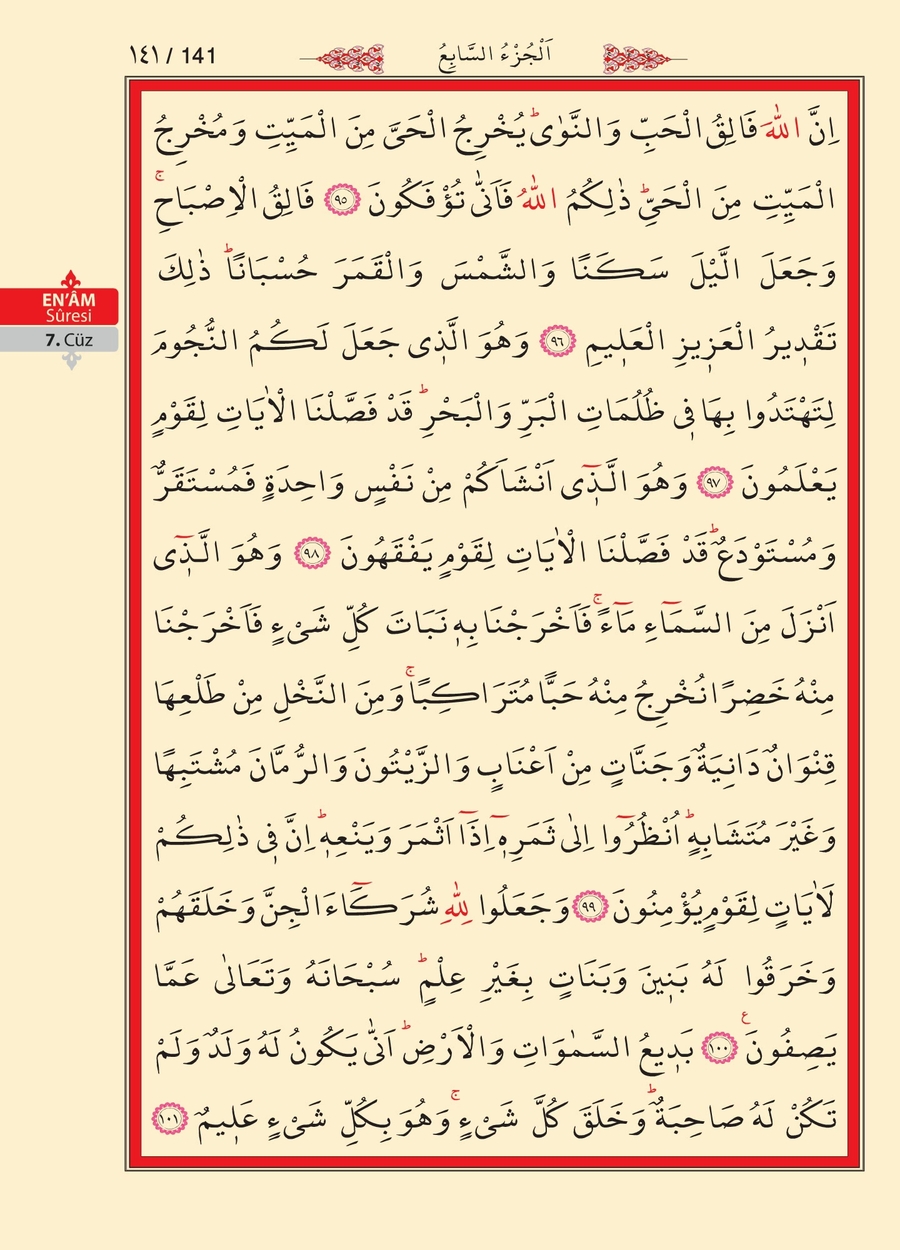 ١٤١ / 141
اَلْجُزْءُ السَّابِعُ
اِنَّ اللّٰهَ فَالِقُ الْحَبِّ وَالنَّوٰىۜ يُخْرِجُ الْحَيَّ مِنَ الْمَيِّتِ وَمُخْرِجُ
الْمَيِّتِ مِنَ الْحَيِّۜ ذٰلِكُمُ اللّٰهُ فَاَنّٰى تُؤْفَكُونَ ﴿٩٥﴾ فَالِقُ الْاِصْبَاحِۚ
وَجَعَلَ الَّيْلَ سَكَنًا وَالشَّمْسَ وَالْقَمَرَ حُسْبَانًاۜ ذٰلِكَ
تَقْد۪يرُ الْعَز۪يزِ الْعَل۪يمِ ﴿٩٦﴾ وَهُوَ الَّذ۪ي جَعَلَ لَكُمُ النُّجُومَ
لِتَهْتَدُوا بِهَا ف۪ي ظُلُمَاتِ الْبَرِّ وَالْبَحْرِۜ قَدْ فَصَّلْنَا الْاٰيَاتِ لِقَوْمٍ
يَعْلَمُونَ ﴿٩٧﴾ وَهُوَ الَّذ۪ٓي اَنْشَاَكُمْ مِنْ نَفْسٍ وَاحِدَةٍ فَمُسْتَقَرٌّ
وَمُسْتَوْدَعٌۜ قَدْ فَصَّلْنَا الْاٰيَاتِ لِقَوْمٍ يَفْقَهُونَ ﴿٩٨﴾ وَهُوَ الَّذ۪ٓي
اَنْزَلَ مِنَ السَّمَٓاءِ مَٓاءًۚ فَاَخْرَجْنَا بِه۪ نَبَاتَ كُلِّ شَيْءٍ فَاَخْرَجْنَا
مِنْهُ خَضِرًا نُخْرِجُ مِنْهُ حَبًّا مُتَرَاكِبًاۚ وَمِنَ النَّخْلِ مِنْ طَلْعِهَا
قِنْوَانٌ دَانِيَةٌ وَجَنَّاتٍ مِنْ اَعْنَابٍ وَالزَّيْتُونَ وَالرُّمَّانَ مُشْتَبِهًا
وَغَيْرَ مُتَشَابِهٍۜ اُنْظُرُٓوا اِلٰى ثَمَرِه۪ٓ اِذَٓا اَثْمَرَ وَيَنْعِه۪ۜ اِنَّ ف۪ي ذٰلِكُمْ
لَاٰيَاتٍ لِقَوْمٍ يُؤْمِنُونَ ﴿٩٩﴾ وَجَعَلُوا لِلّٰهِ شُرَكَٓاءَ الْجِنَّ وَخَلَقَهُمْ
وَخَرَقُوا لَهُ بَن۪ينَ وَبَنَاتٍ بِغَيْرِ عِلْمٍۜ سُبْحَانَهُ وَتَعَالٰى عَمَّا
يَصِفُونَ۟ ﴿١٠٠﴾ بَد۪يعُ السَّمٰوَاتِ وَالْاَرْضِۜ اَنّٰى يَكُونُ لَهُ وَلَدٌ وَلَمْ
تَكُنْ لَهُ صَاحِبَةٌۜ وَخَلَقَ كُلَّ شَيْءٍۚ وَهُوَ بِكُلِّ شَيْءٍ عَل۪يمٌ ﴿١٠١﴾
EN'ÂM
Sûresi
7. Cüz